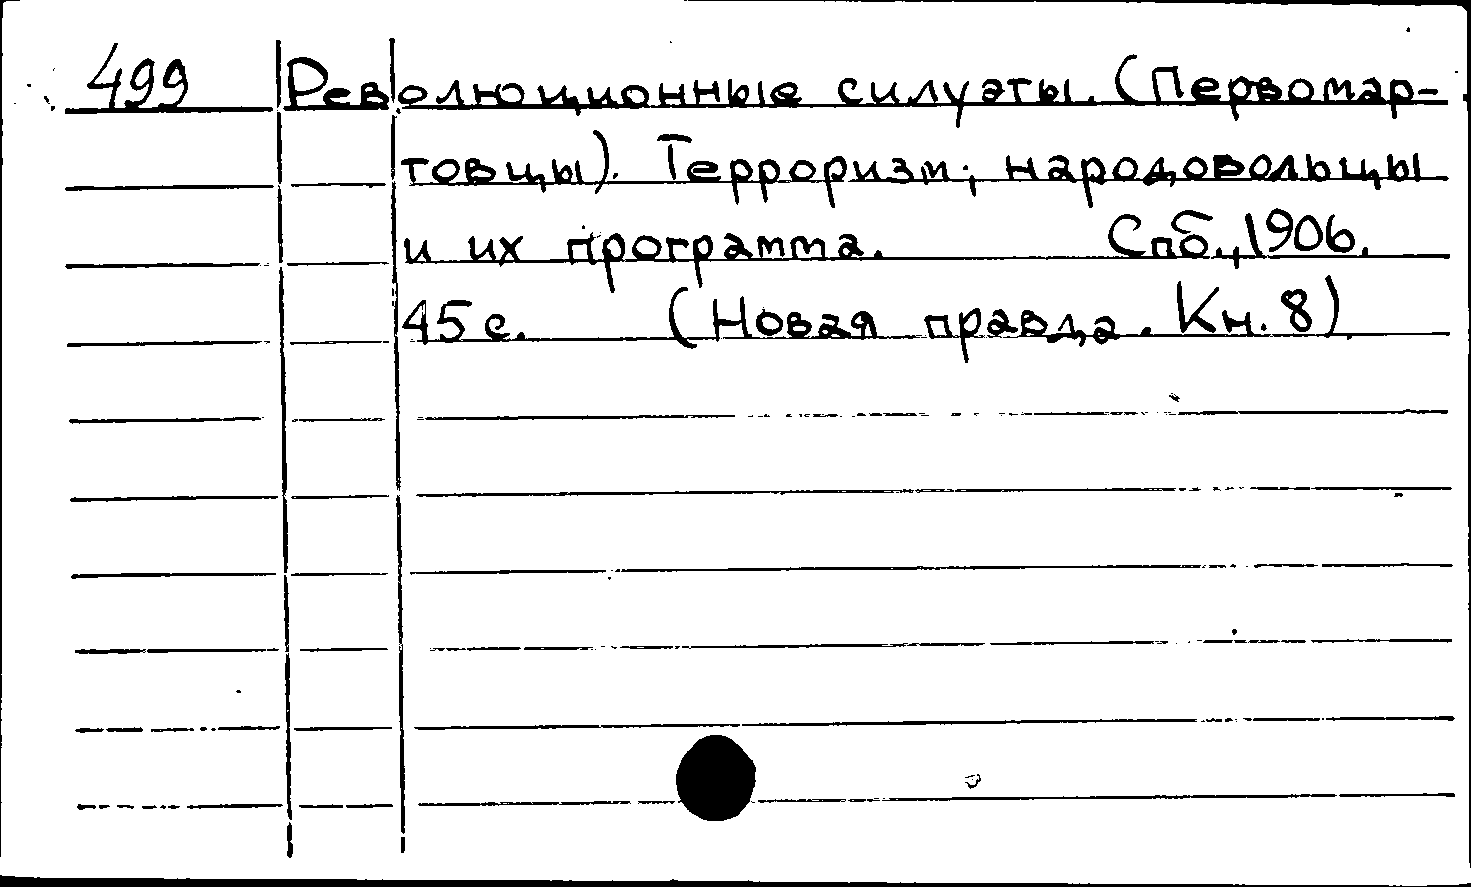 499 Революционные силуэты. (Первомар-
товцы). Терроризм; народовольцы
и их программа. Спб., 1906.
45 с. (Новая правда. Кн. 8).